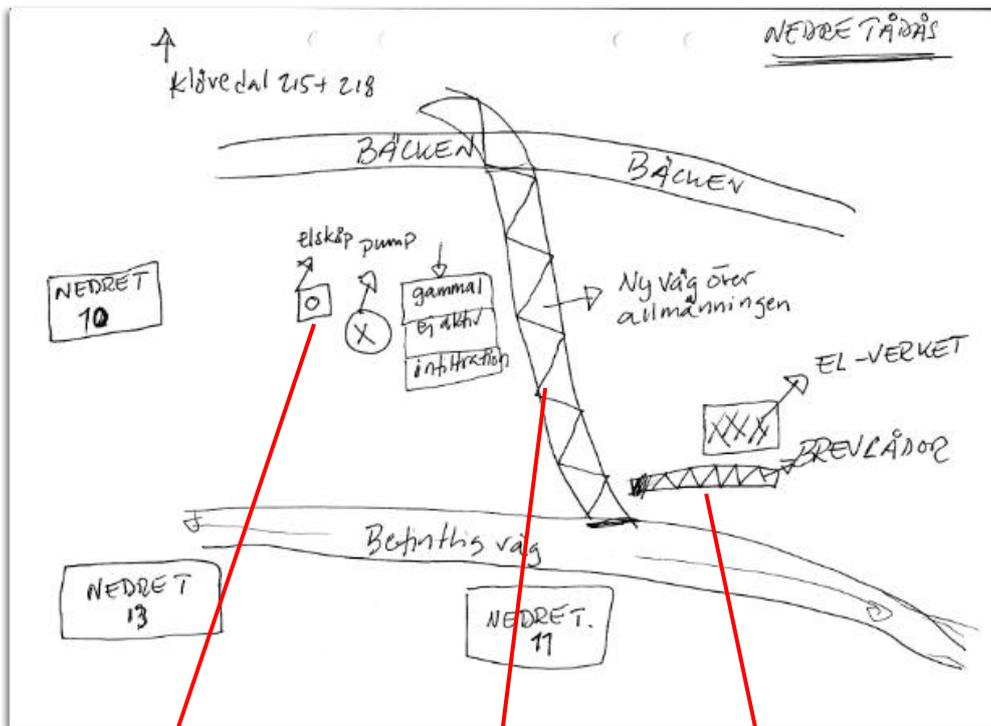 NEDRE TÅDÅS
Klövedal 215+ 218
BÄCKEN
BÄCKEN
elskåp
pump
NEDRET
10
X
gammal
Ej aktiv
infiltration
Ny väg över
allmänningen
EL-VERKET
XXX
BREVLÅDOR
Befintlig väg
NEDRET
13
NEDRET.
11